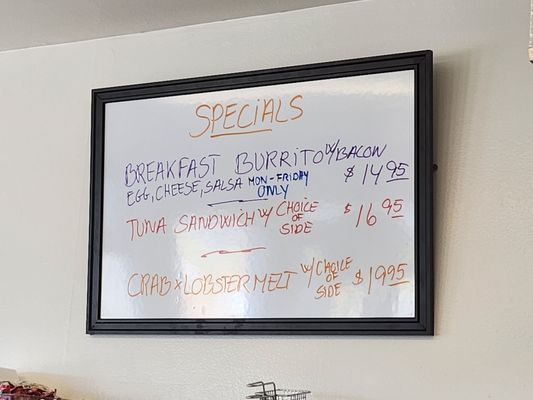 SPECIALS
BREAKFAST BURRITO W/ BACON
EGG, CHEESE, SALSA MON-FRIDAY ONLY $14.95
TUNA SANDWICH W/ CHOICE OF SIDE $16.95
CRAB x LOBSTER MELT W/ CHOICE OF SIDE $19.95